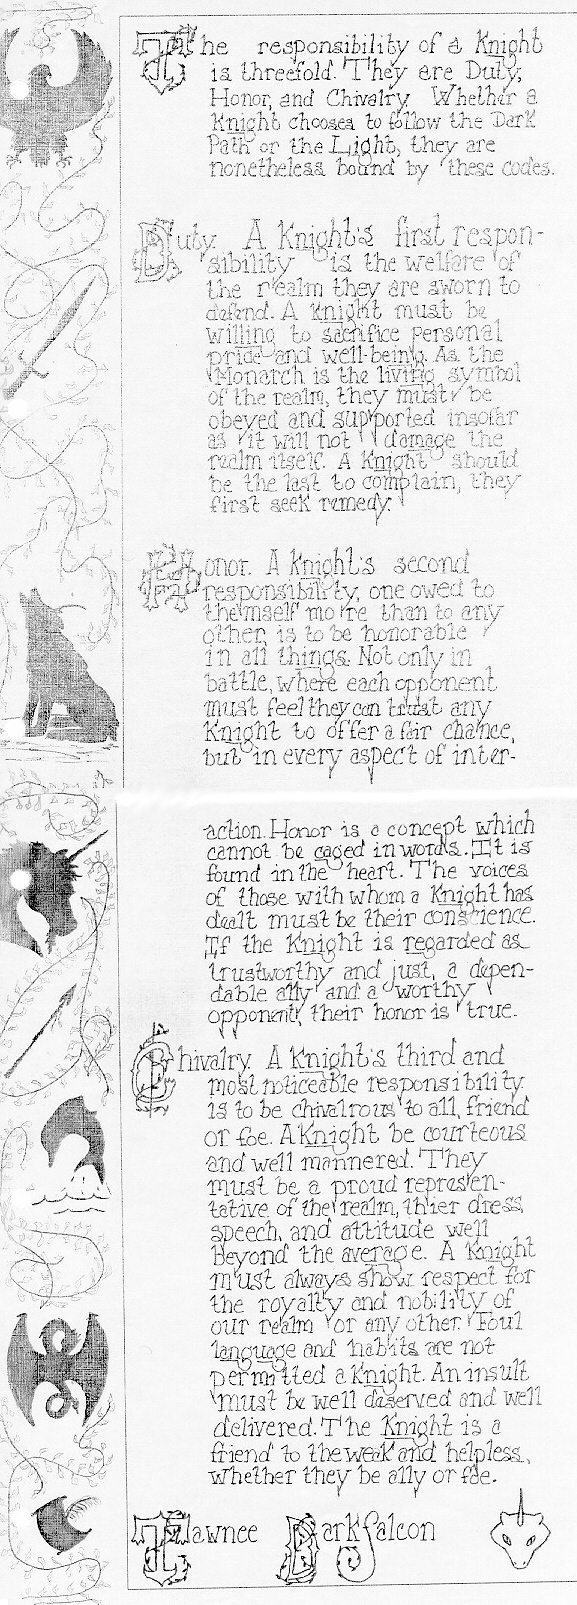 The responsibility of a Knight
is threefold. They are Duty,
Honor, and Chivalry. Whether a
Knight chooses to follow the Dark
Path or the Light, they are
nonetheless bound by these codes.
Duty. A Knight's first respon-
sibility is the welfare of
the realm they are sworn to
defend. A Knight must be
willing to sacrifice personal
pride and well-being. As the
Monarch is the living symbol
of the realm, they must be
obeyed and supported insofar
as it will not damage the
realm itself. A Knight should
be the last to complain, they
first seek remedy.
Honor. A Knight's second
responsibility, one owed to
themself more than to any
other, is to be honorable
in all things. Not only in
battle, where each opponent
must feel they can trust any
Knight to offer a fair chance,
but in every aspect of inter-
action. Honor is a concept which
cannot be caged in words. It is
found in the heart. The voices
of those with whom a Knight has
dealt must be their conscience.
If the Knight is regarded as
trustworthy and just, a depen-
dable ally and a worthy
opponent, their honor is true.
Chivalry. A Knight's third and
most noticeable responsibility
is to be chivalrous to all, friend
or foe. A Knight be courteous
and well mannered. They
must be a proud represen-
tative of the realm, thier dress,
speech, and attitude well
beyond the average. A Knight
must always show respect for
the royalty and nobility of
our realm or any other. Foul
language and habits are not
permitted a Knight. An insult
must be well deserved and well
delivered. The Knight is a
friend to the weak and helpless,
whether they be ally or foe.
Tawnee Darkfalcon